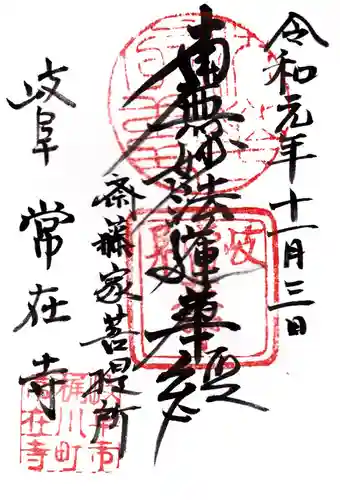 令和元年十一月三日
南無妙法蓮華経
斎藤家菩提所
岐阜 常在寺
岐阜市
梶川町
常在寺